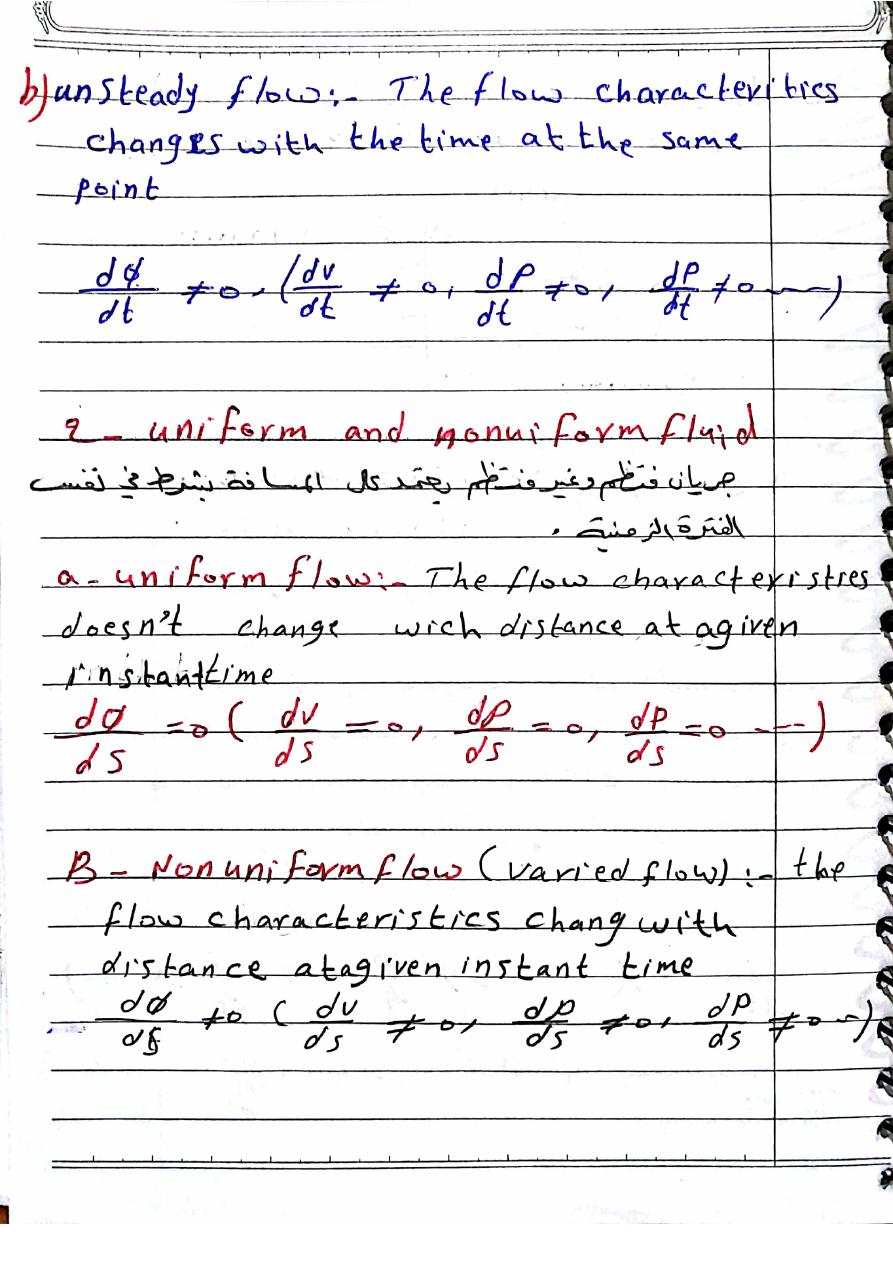 b) unsteady flow:- The flow characterities
changes with the time at the same
point
dϕ/dt ≠ 0, (dv/dt ≠ 0, dρ/dt ≠ 0, dP/dt ≠ 0 ---)
2 - uniform and nonuiform fluid
جريان منتظم وغير منتظم يعتمد على المسافة بشرط في نفس
الفترة الزمنية .
a - uniform flow:- The flow characteristres
doesn't change wich distance at agiven
instant time
dϕ/ds = 0 ( dv/ds = 0, dρ/ds = 0, dP/ds = 0 --- )
B - Nonuniform flow (varied flow) :- the
flow characteristics chang with
distance atagiven instant time
dϕ/ds ≠ 0 ( dv/ds ≠ 0, dρ/ds ≠ 0, dP/ds ≠ 0 --)